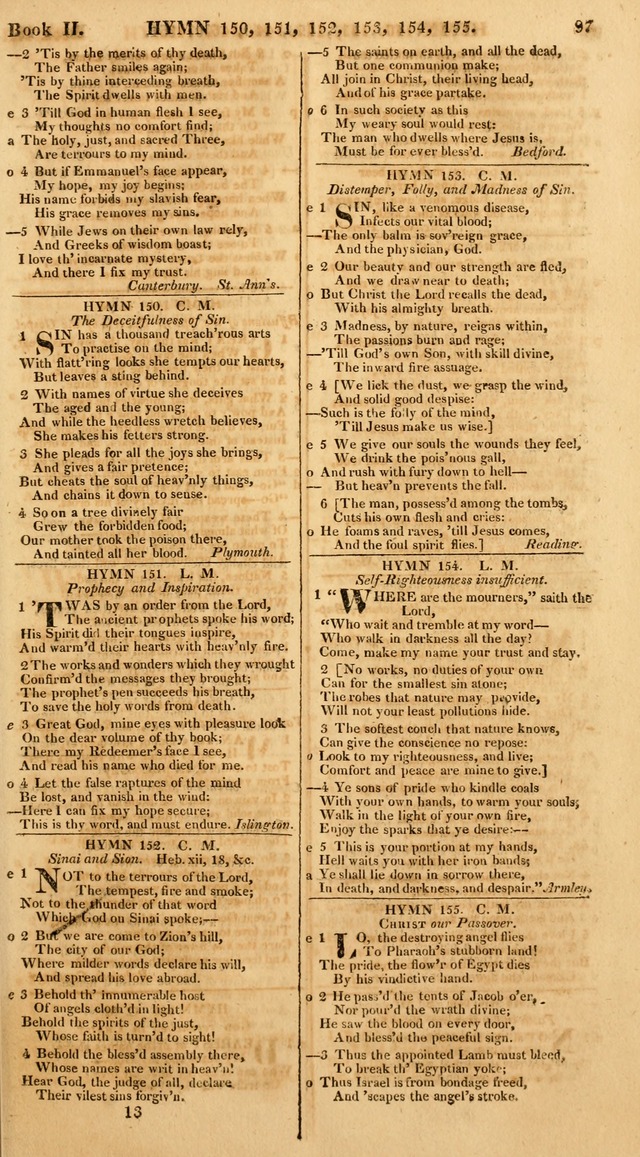 Book II. HYMN 150, 151, 152, 153, 154, 155. 97
—2 'Tis by the merits of thy death,
The Father smiles again;
'Tis by thine interceding breath,
The Spirit dwells with men.
e 3 'Till God in human flesh I see,
My thoughts no comfort find;
a The holy, just, and sacred Three,
Are terrours to my mind.
o 4 But if Emmanuel's face appear,
My hope, my joy begins;
His name forbids my slavish fear,
His grace removes my sins.
—5 While Jews on their own law rely,
And Greeks of wisdom boast;
I love th' incarnate mystery,
And there I fix my trust.
Canterbury. St. Ann's.
HYMN 150. C. M.
The Deceitfulness of Sin.
1 SIN has a thousand treach'rous arts
To practise on the mind;
With flatt'ring looks she tempts our hearts,
But leaves a sting behind.
2 With names of virtue she deceives
The aged and the young;
And while the heedless wretch believes,
She makes his fetters strong.
3 She pleads for all the joys she brings,
And gives a fair pretence;
But cheats the soul of heav'nly things,
And chains it down to sense.
4 So on a tree divinely fair
Grew the forbidden food;
Our mother took the poison there,
And tainted all her blood. Plymouth.
HYMN 151. L. M.
Prophecy and Inspiration.
1 'TWAS by an order from the Lord,
The ancient prophets spoke his word;
His Spirit did their tongues inspire,
And warm'd their hearts with heav'nly fire.
2 The works and wonders which they wrought
Confirm'd the messages they brought;
The prophet's pen succeeds his breath,
To save the holy words from death.
e 3 Great God, mine eyes with pleasure look
On the dear volume of thy book;
There my Redeemer's face I see,
And read his name who died for me.
o 4 Let the false raptures of the mind
Be lost, and vanish in the wind:
—Here I can fix my hope secure;
This is thy word, and must endure. Islington.
HYMN 152. C. M.
Sinai and Sion. Heb. xii, 18, &c.
e 1 NOT to the terrours of the Lord,
The tempest, fire and smoke;
Not to the thunder of that word
Which God on Sinai spoke;—
o 2 But we are come to Zion's hill,
The city of our God;
Where milder words declare his will,
And spread his love abroad.
e 3 Behold th' innumerable host
Of angels cloth'd in light!
Behold the spirits of the just,
Whose faith is turn'd to sight!
4 Behold the bless'd assembly there,
Whose names are writ in heav'n!
Hear God, the judge of all, declare
Their vilest sins forgiv'n.
13
—5 The saints on earth, and all the dead,
But one communion make;
All join in Christ, their living head,
And of his grace partake.
o 6 In such society as this
My weary soul would rest:
The man who dwells where Jesus is,
Must be for ever bless'd. Bedford.
HYMN 153. C. M.
Distemper, Folly, and Madness of Sin.
e 1 SIN, like a venomous disease,
Infects our vital blood;
—The only balm is sov'reign grace,
And the physician, God.
e 2 Our beauty and our strength are fled,
And we draw near to death;
o But Christ the Lord recalls the dead,
With his almighty breath.
e 3 Madness, by nature, reigns within,
The passions burn and rage;
—'Till God's own Son, with skill divine,
The inward fire assuage.
e 4 [We lick the dust, we grasp the wind,
And solid good despise:
—Such is the folly of the mind,
'Till Jesus make us wise.]
e 5 We give our souls the wounds they feel,
We drink the pois'nous gall,
o And rush with fury down to hell—
— But heav'n prevents the fall.
6 [The man, possess'd among the tombs,
Cuts his own flesh and cries:
o He foams and raves, 'till Jesus comes,
And the foul spirit flies.] Reading.
HYMN 154. L. M.
Self-Righteousness insufficient.
1 "WHERE are the mourners," saith the
Lord,
"Who wait and tremble at my word—
Who walk in darkness all the day?
Come, make my name your trust and stay.
2 [No works, no duties of your own
Can for the smallest sin atone;
The robes that nature may provide,
Will not your least pollutions hide.
3 The softest couch that nature knows,
Can give the conscience no repose:
o Look to my righteousness, and live;
Comfort and peace are mine to give.]
—4 Ye sons of pride who kindle coals
With your own hands, to warm your souls;
Walk in the light of your own fire,
Enjoy the sparks that ye desire:—
e 5 This is your portion at my hands,
Hell waits you with her iron bands;
a Ye shall lie down in sorrow there,
In death, and darkness, and despair." Armley.
HYMN 155. C. M.
CHRIST our Passover.
e 1 LO, the destroying angel flies
To Pharaoh's stubborn land!
The pride, the flow'r of Egypt dies
By his vindictive hand.
o 2 He pass'd the tents of Jacob o'er,
Nor pour'd the wrath divine;
He saw the blood on every door,
And bless'd the peaceful sign.
—3 Thus the appointed Lamb must bleed,
To break th' Egyptian yoke;
o Thus Israel is from bondage freed,
And 'scapes the angel's stroke.